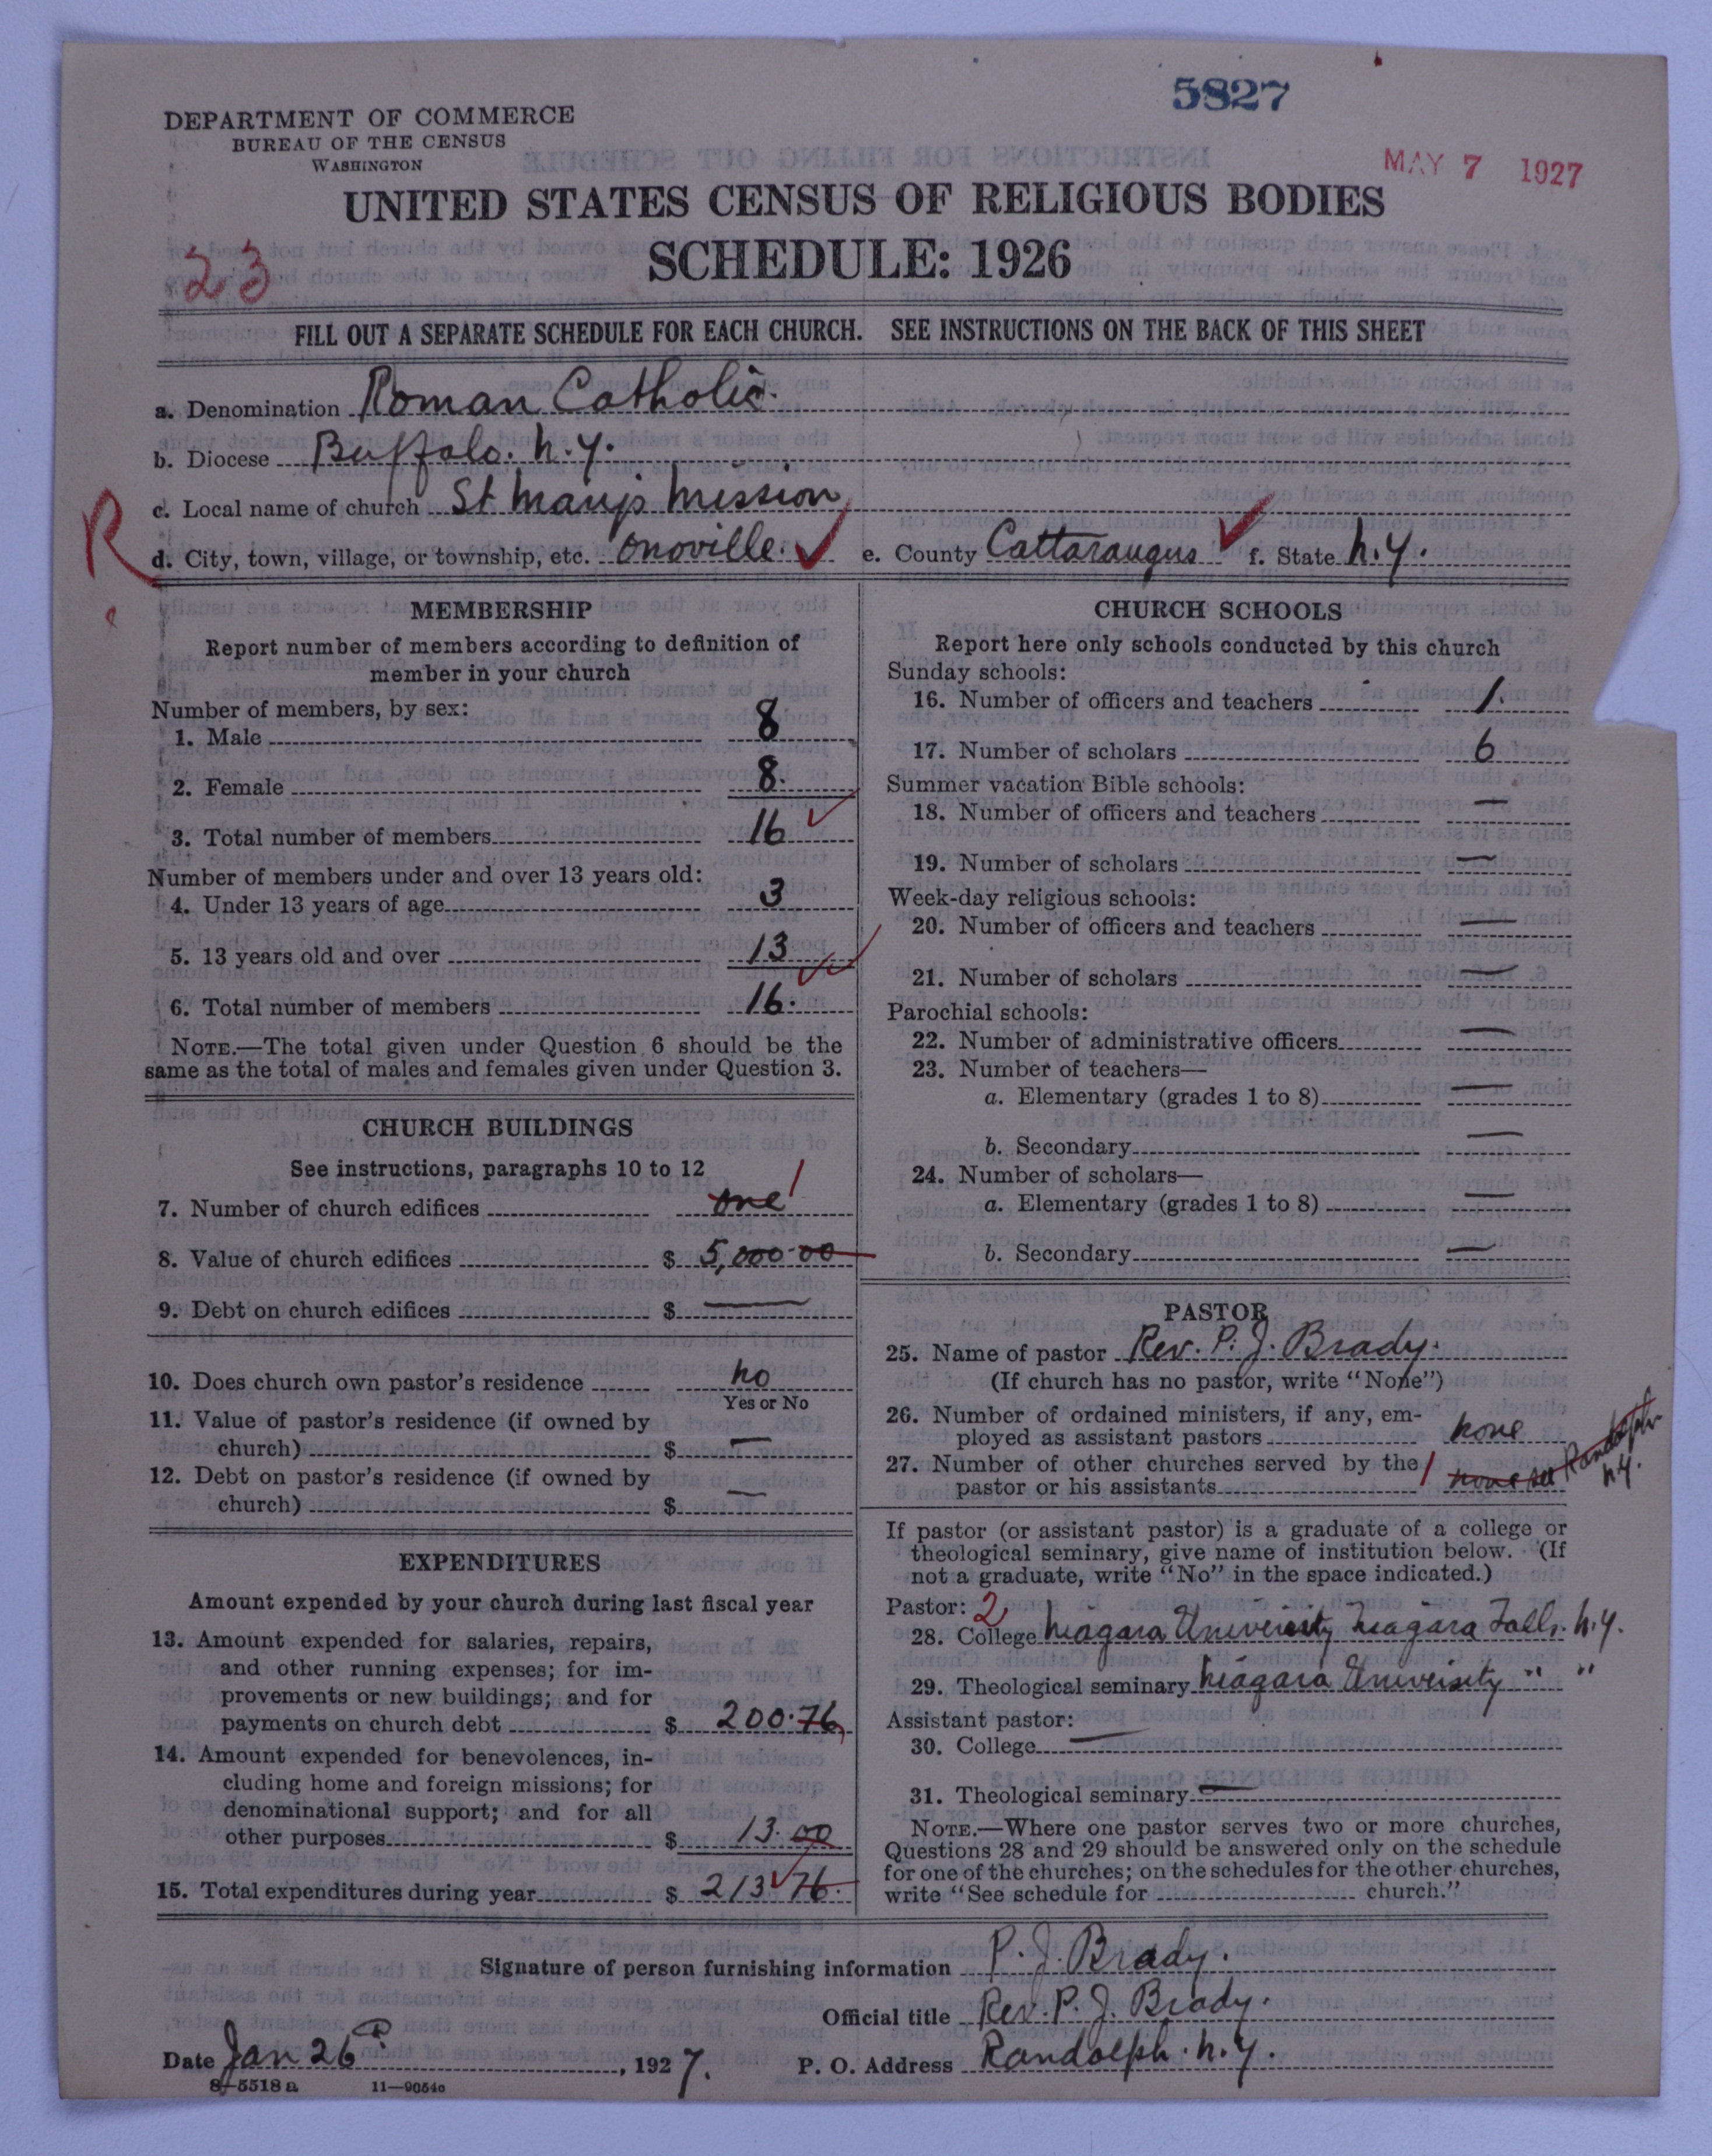 5827
DEPARTMENT OF COMMERCE
BUREAU OF THE CENSUS
WASHINGTON
MAY 7 1927
UNITED STATES CENSUS OF RELIGIOUS BODIES
SCHEDULE: 1926
23
FILL OUT A SEPARATE SCHEDULE FOR EACH CHURCH. SEE INSTRUCTIONS ON THE BACK OF THIS SHEET
a. Denomination Roman Catholic.
b. Diocese Buffalo. N.Y.
c. Local name of church St Mary's Mission
R
d. City, town, village, or township, etc. Onoville. ✓ e. County Cattaraugus ✓ f. State N.Y.
MEMBERSHIP
Report number of members according to definition of
member in your church
Number of members, by sex:
1. Male 8
2. Female 8.
3. Total number of members 16 ✓
Number of members under and over 13 years old:
4. Under 13 years of age 3
5. 13 years old and over 13
6. Total number of members 16. ✓✓
NOTE.—The total given under Question 6 should be the
same as the total of males and females given under Question 3.
CHURCH BUILDINGS
See instructions, paragraphs 10 to 12
7. Number of church edifices one 1
8. Value of church edifices $ 5,000.00
9. Debt on church edifices $ —
10. Does church own pastor's residence No
Yes or No
11. Value of pastor's residence (if owned by
church) $ —
12. Debt on pastor's residence (if owned by
church) $ —
EXPENDITURES
Amount expended by your church during last fiscal year
13. Amount expended for salaries, repairs,
and other running expenses; for im-
provements or new buildings; and for
payments on church debt $ 200.76
14. Amount expended for benevolences, in-
cluding home and foreign missions; for
denominational support; and for all
other purposes $ 13.00
15. Total expenditures during year $ 213.76 ✓
CHURCH SCHOOLS
Report here only schools conducted by this church
Sunday schools:
16. Number of officers and teachers 1.
17. Number of scholars 6
Summer vacation Bible schools:
18. Number of officers and teachers —
19. Number of scholars —
Week-day religious schools:
20. Number of officers and teachers —
21. Number of scholars —
Parochial schools:
22. Number of administrative officers —
23. Number of teachers—
a. Elementary (grades 1 to 8) —
b. Secondary —
24. Number of scholars—
a. Elementary (grades 1 to 8) —
b. Secondary —
PASTOR
25. Name of pastor Rev. P. J. Brady.
(If church has no pastor, write "None")
26. Number of ordained ministers, if any, em-
ployed as assistant pastors none
27. Number of other churches served by the 1
pastor or his assistants none Randolph N.Y.
If pastor (or assistant pastor) is a graduate of a college or
theological seminary, give name of institution below. (If
not a graduate, write "No" in the space indicated.)
Pastor: 2
28. College Niagara University Niagara Falls. N.Y.
29. Theological seminary Niagara University " "
Assistant pastor:
30. College —
31. Theological seminary —
NOTE.—Where one pastor serves two or more churches,
Questions 28 and 29 should be answered only on the schedule
for one of the churches; on the schedules for the other churches,
write "See schedule for church."
Signature of person furnishing information P. J. Brady.
Official title Rev. P. J. Brady.
Date Jan 26, 1927. P. O. Address Randolph. N.Y.
8—5518 a 11—9054a